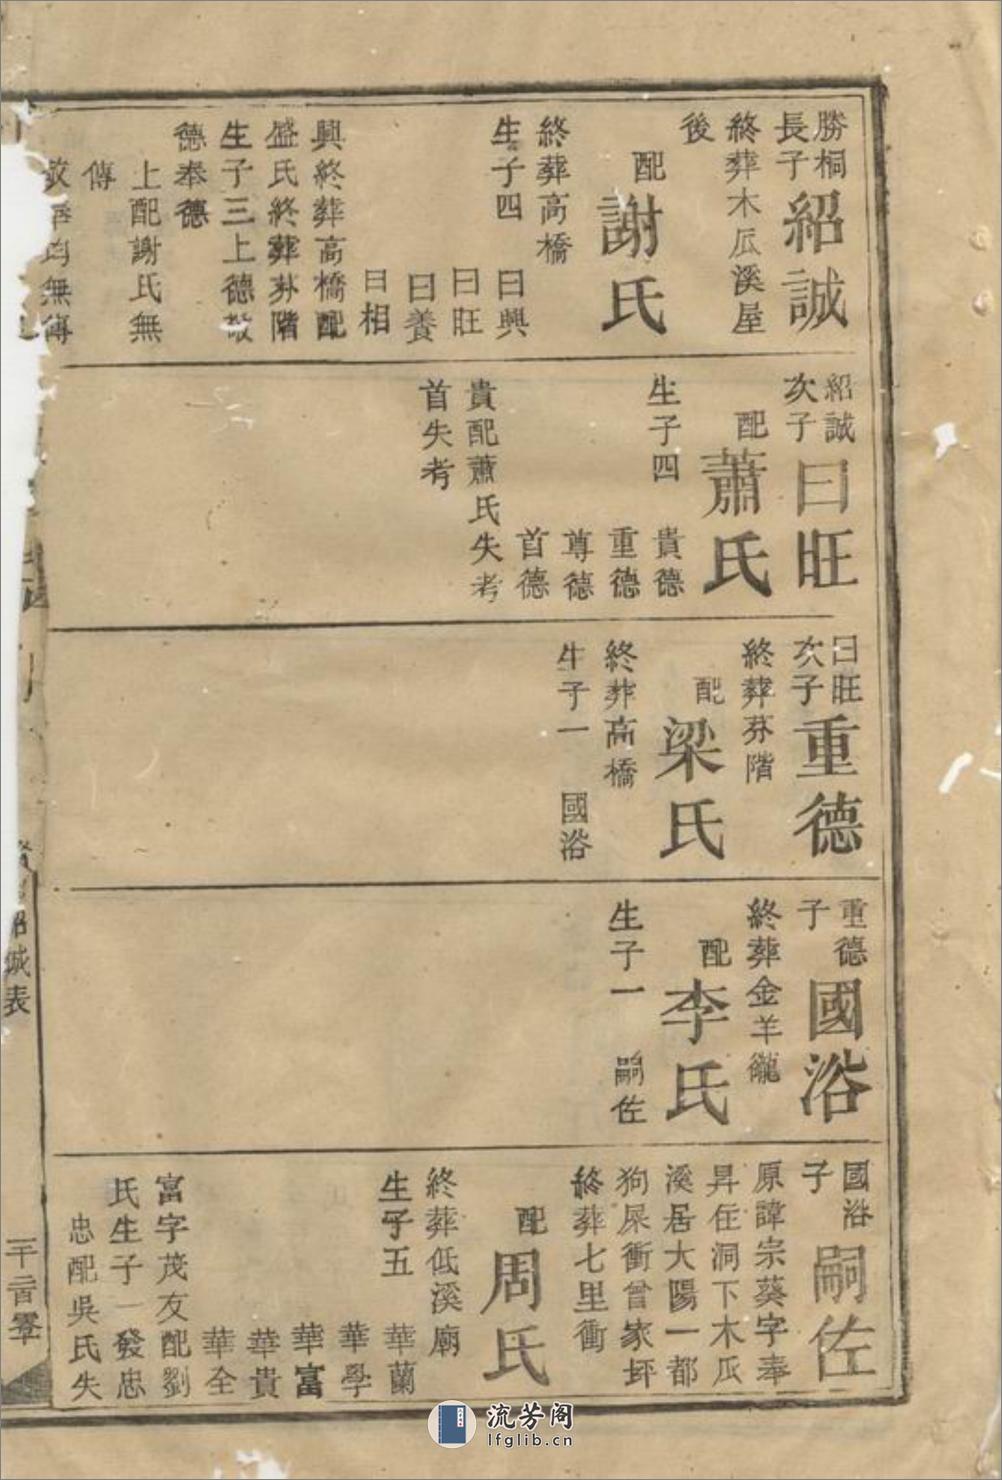 勝桐
長子
紹誠
終葬木瓜溪屋
後
配
謝氏
終葬高橋
生子四
曰興
曰旺
曰養
曰相
興終葬高橋配
盛氏終葬芬階
生子三上德敬
德奉德
上配謝氏無
傳
均無傳
紹誠
次子
曰旺
配
蕭氏
生子四
貴德
重德
尊德
首德
貴配蕭氏失考
首失考
曰旺
次子
重德
終葬芬階
配
梁氏
終葬高橋
生子一
國浴
重德
子
國浴
終葬金羊
配
李氏
生子一
嗣佐
國浴
子
嗣佐
原諱宗葵字奉
昇住洞下木瓜
溪居大陽一都
狗屎衝曾家坪
終葬七里衝
配
周氏
終葬低溪廟
生子五
華蘭
華學
華富
華貴
華全
富字茂友配劉
氏生子一發忠
忠配吳氏失
紹誠表
流芳阁
lfglib.cn